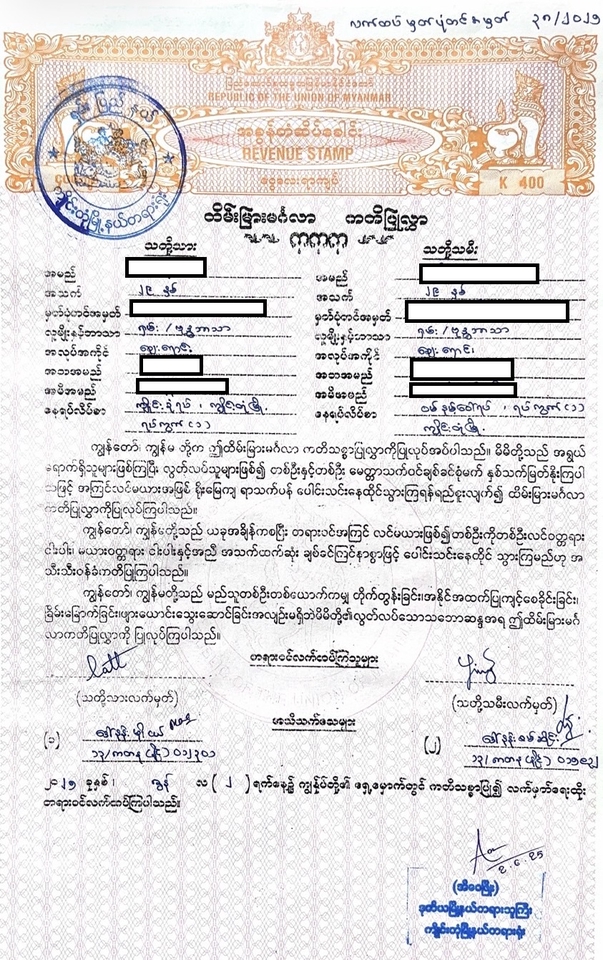 လက်ထပ် မှတ်ပုံတင် အမှတ် ၃၈/၂၀၂၅
ပြည်ထောင်စုသမ္မတမြန်မာနိုင်ငံတော်
REPUBLIC OF THE UNION OF MYANMAR
အခွန်တံဆိပ်ခေါင်း
REVENUE STAMP
ငွေလေးရာကျပ်
K 400
ရှမ်းပြည်နယ်
ကျိုင်းတုံမြို့နယ်တရားရုံး
ထိမ်းမြားမင်္ဂလာ ကတိပြုလွှာ
သတို့သား သတို့သမီး
အမည် အမည်
အသက် ၂၉ နှစ် အသက် ၂၉ နှစ်
မှတ်ပုံတင်အမှတ် မှတ်ပုံတင်အမှတ်
လူမျိုးနှင့်ဘာသာ ရှမ်း/ဗုဒ္ဓဘာသာ လူမျိုးနှင့်ဘာသာ ရှမ်း/ဗုဒ္ဓဘာသာ
အလုပ်အကိုင် ဈေးရောင်း အလုပ်အကိုင် ဈေးရောင်း
အဘအမည် အဘအမည်
အမိအမည် အမိအမည်
နေရပ်လိပ်စာ ကျိုင်းတုံမြို့ နေရပ်လိပ်စာ ရပ်ကွက်(၁)
ရပ်ကွက်(၁) ကျိုင်းတုံမြို့
ကျွန်တော်၊ ကျွန်မ တို့က ဤထိမ်းမြားမင်္ဂလာ ကတိသစ္စာပြုလွှာကိုပြုလုပ်အပ်ပါသည်။ မိမိတို့သည် အရွယ်
ရောက်ရှိသူများဖြစ်ကြပြီး လွတ်လပ်သူများဖြစ်၍ တစ်ဦးနှင့်တစ်ဦး မေတ္တာသက်ဝင်ချစ်ခင်စုံမက် နှစ်သက်မြတ်နိုးကြပါ
သဖြင့် အကြင်လင်မယားအဖြစ် ရိုးမြေကျ ရာသက်ပန် ပေါင်းသင်းနေထိုင်သွားကြရန်ရည်စူးလျက်၍ ထိမ်းမြားမင်္ဂလာ
ကတိပြုလွှာကိုပြုလုပ်ကြပါသည်။
ကျွန်တော်၊ ကျွန်မတို့သည် ယခုအချိန်ကစပြီး တရားဝင်အကြင် လင်မယားဖြစ်၍တစ်ဦးကိုတစ်ဦးလင်ဝတ္တရား
ငါးပါး၊ မယားဝတ္တရား ငါးပါးနှင့်အညီ အသက်ထက်ဆုံး ချစ်ခင်ကြင်နာစွာဖြင့် ပေါင်းသင်းနေထိုင် သွားကြမည်ဟု အ
သီးသီးဝန်ခံကတိပြုကြပါသည်။
ကျွန်တော်၊ ကျွန်မတို့သည် မည်သူတစ်ဦးတစ်ယောက်ကမျှ တိုက်တွန်းခြင်း၊အနိုင်အထက်ပြုကျင့်စေခိုင်းခြင်း၊
ခြိမ်းခြောက်ခြင်း၊ဖျားယောင်းသွေးဆောင်ခြင်းအလျဉ်းမရှိဘဲမိမိတို့၏လွတ်လပ်သောသဘောဆန္ဒအရ ဤထိမ်းမြားမင်္ဂ
လာကတိပြုလွှာကို ပြုလုပ်ကြပါသည်။
တရားဝင်လက်ထပ်ကြသူများ
(သတို့သားလက်မှတ်) (သတို့သမီးလက်မှတ်)
အသိသက်သေများ
(၁) (၂)
၂၀၂၅ ခုနှစ်၊ ဇွန် လ (၂) ရက်နေ့၌ ကျွန်ုပ်တို့၏ ရှေ့မှောက်တွင် ကတိသစ္စာပြု၍ လက်မှတ်ရေးထိုး
တရားဝင်လက်ထပ်ကြပါသည်။
၂.၆.၂၅
ဒုတိယမြို့နယ်တရားသူကြီး
ကျိုင်းတုံမြို့နယ်တရားရုံး